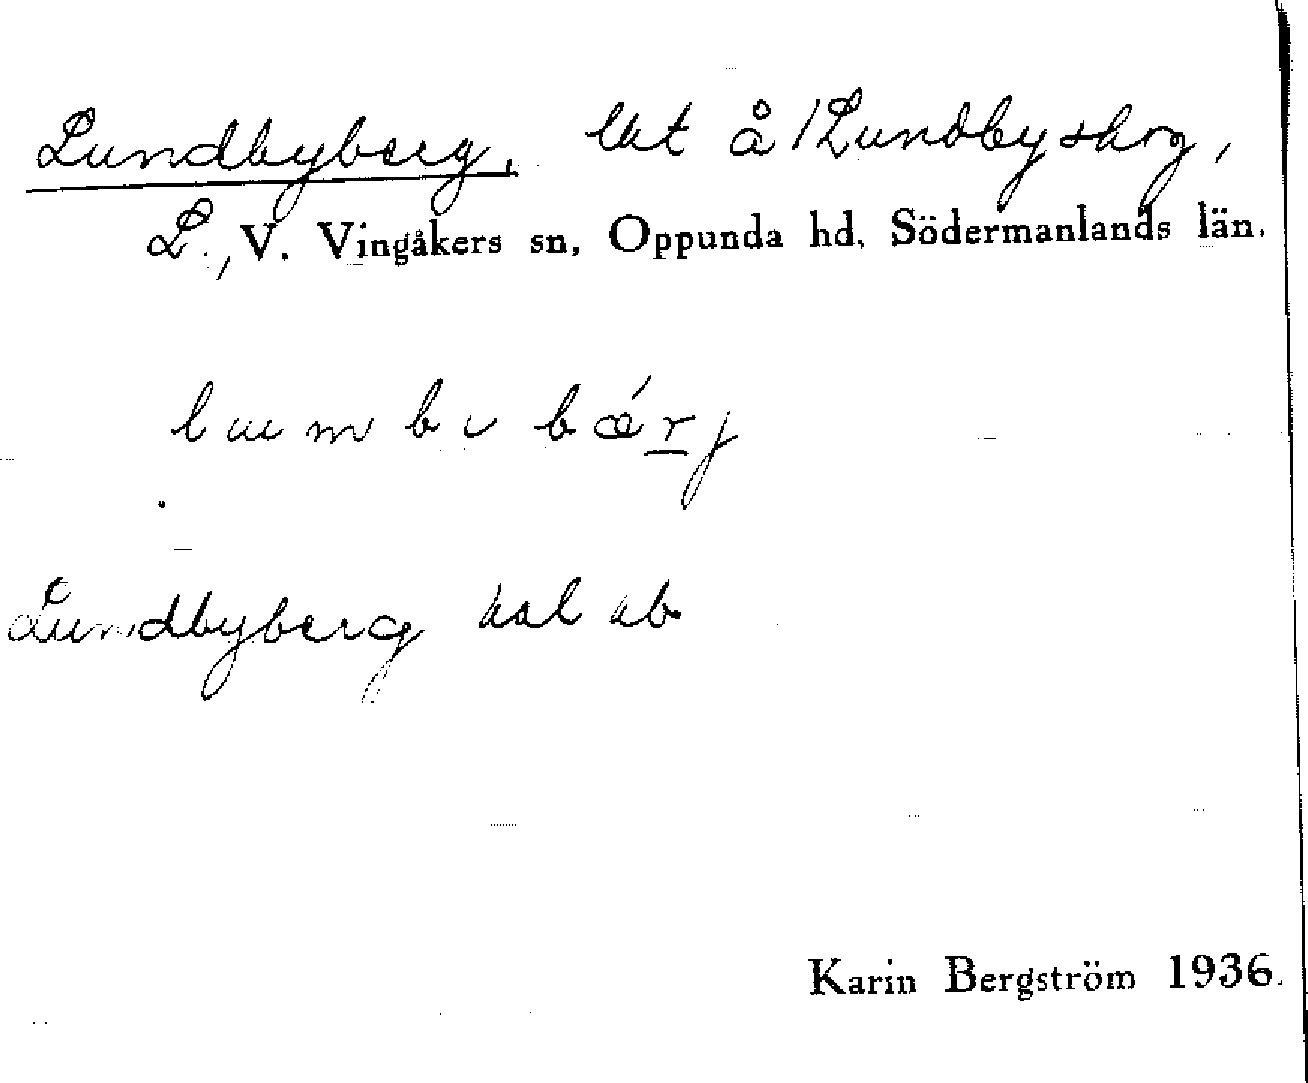 Lundbyberg, lht å 1 Lundbyskog,
L., V. Vingåkers sn, Oppunda hd, Södermanlands län.
Lundbyberg
Karin Bergström 1936.